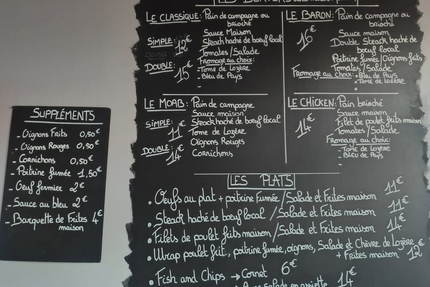 SUPPLÉMENTS
- Oignons Frits 0,50€
- Oignons Rouges 0,50€
- Cornichons 0,50€
- Poitrine fumée 1,50€
- Oeuf fermier 2€
- Sauce au bleu 2€
- Barquette de Frites maison 4€
LE CLASSIQUE: Pain de campagne ou brioché
Sauce Maison
SIMPLE: 12€ Steack haché de boeuf local
Tomates/Salade
DOUBLE: 15€ Fromage au choix:
- Tome de Lozère
- Bleu de Pays
LE BARON: Pain de campagne ou brioché
Sauce maison
16€ Double Steack haché de boeuf local
Poitrine fumée/Oignons frits
Tomates/Salade
Fromage au choix: - Bleu de Pays
- Tome de Lozère
LE MOAB: Pain de campagne
Sauce maison
SIMPLE: 11€ Steack haché de boeuf local
Tome de Lozère
Oignons Rouges
DOUBLE: 14€ Cornichons
LE CHICKEN: Pain brioché
Sauce maison
14€ Filet de poulet frits maison
Tomates/Salade
Fromage au choix:
- Tome de Lozère
- Bleu de Pays
LES PLATS
• Oeufs au plat + poitrine fumée/Salade et Frites maison 11€
• Steack haché de boeuf local/Salade et Frites maison 11€
• Filets de poulet frits maison/Salade et Frites maison 14€
• Wrap poulet frit, poitrine fumée, oignons, Salade et Chèvre de Lozère + Frites maison 12€
• Fish and Chips → Cornet 6€
14€